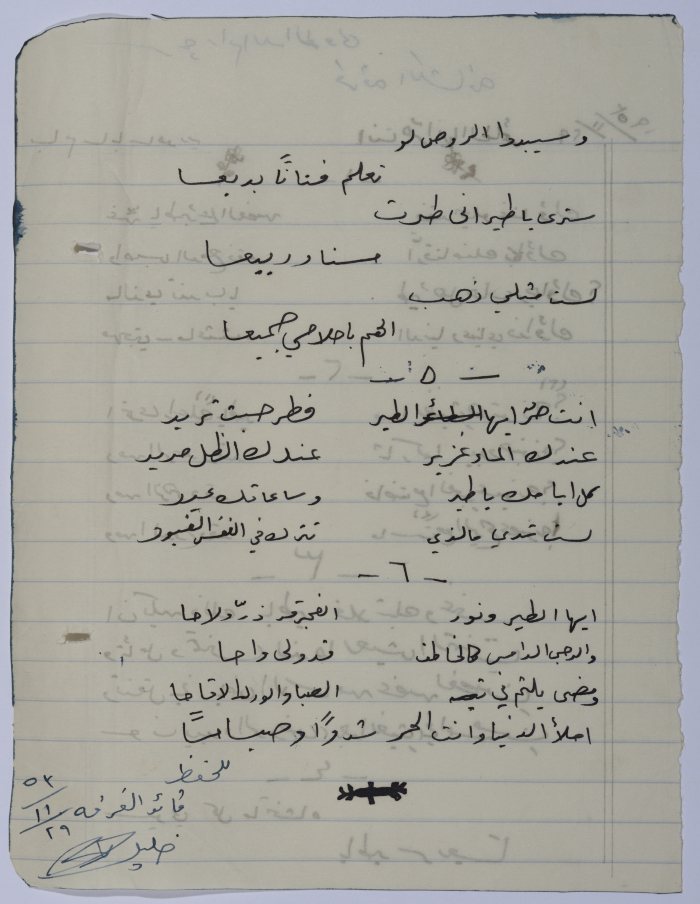 وسيبدوا الروض لو
تعلم فناناً بديعا
سترى يا طير انى طرت
حسنا وربيعا
لست مثلي ذهب
الهم باحلامي جميعا
- ٥ -
انت حرّ ايها الطير فطر حيث تريد
عندك الماء غزير عندك الظل مديد
كل ايامك يا طير وساعاتك عيد
لست تدري ما لذي تترك في النفس القيود
- ٦ -
ايها الطير ونور الفجر قد ذرّ ولاحا
والدجى الدامس كالخاطف قدولى وراحا
ومضى يلثم في تيه الصبا والورد الاقاحا
املأ الدنيا وانت الحر شدوًا وصباحا
للحفظ
قائد الفرقه
٥٣/١١/٢٩
خليل